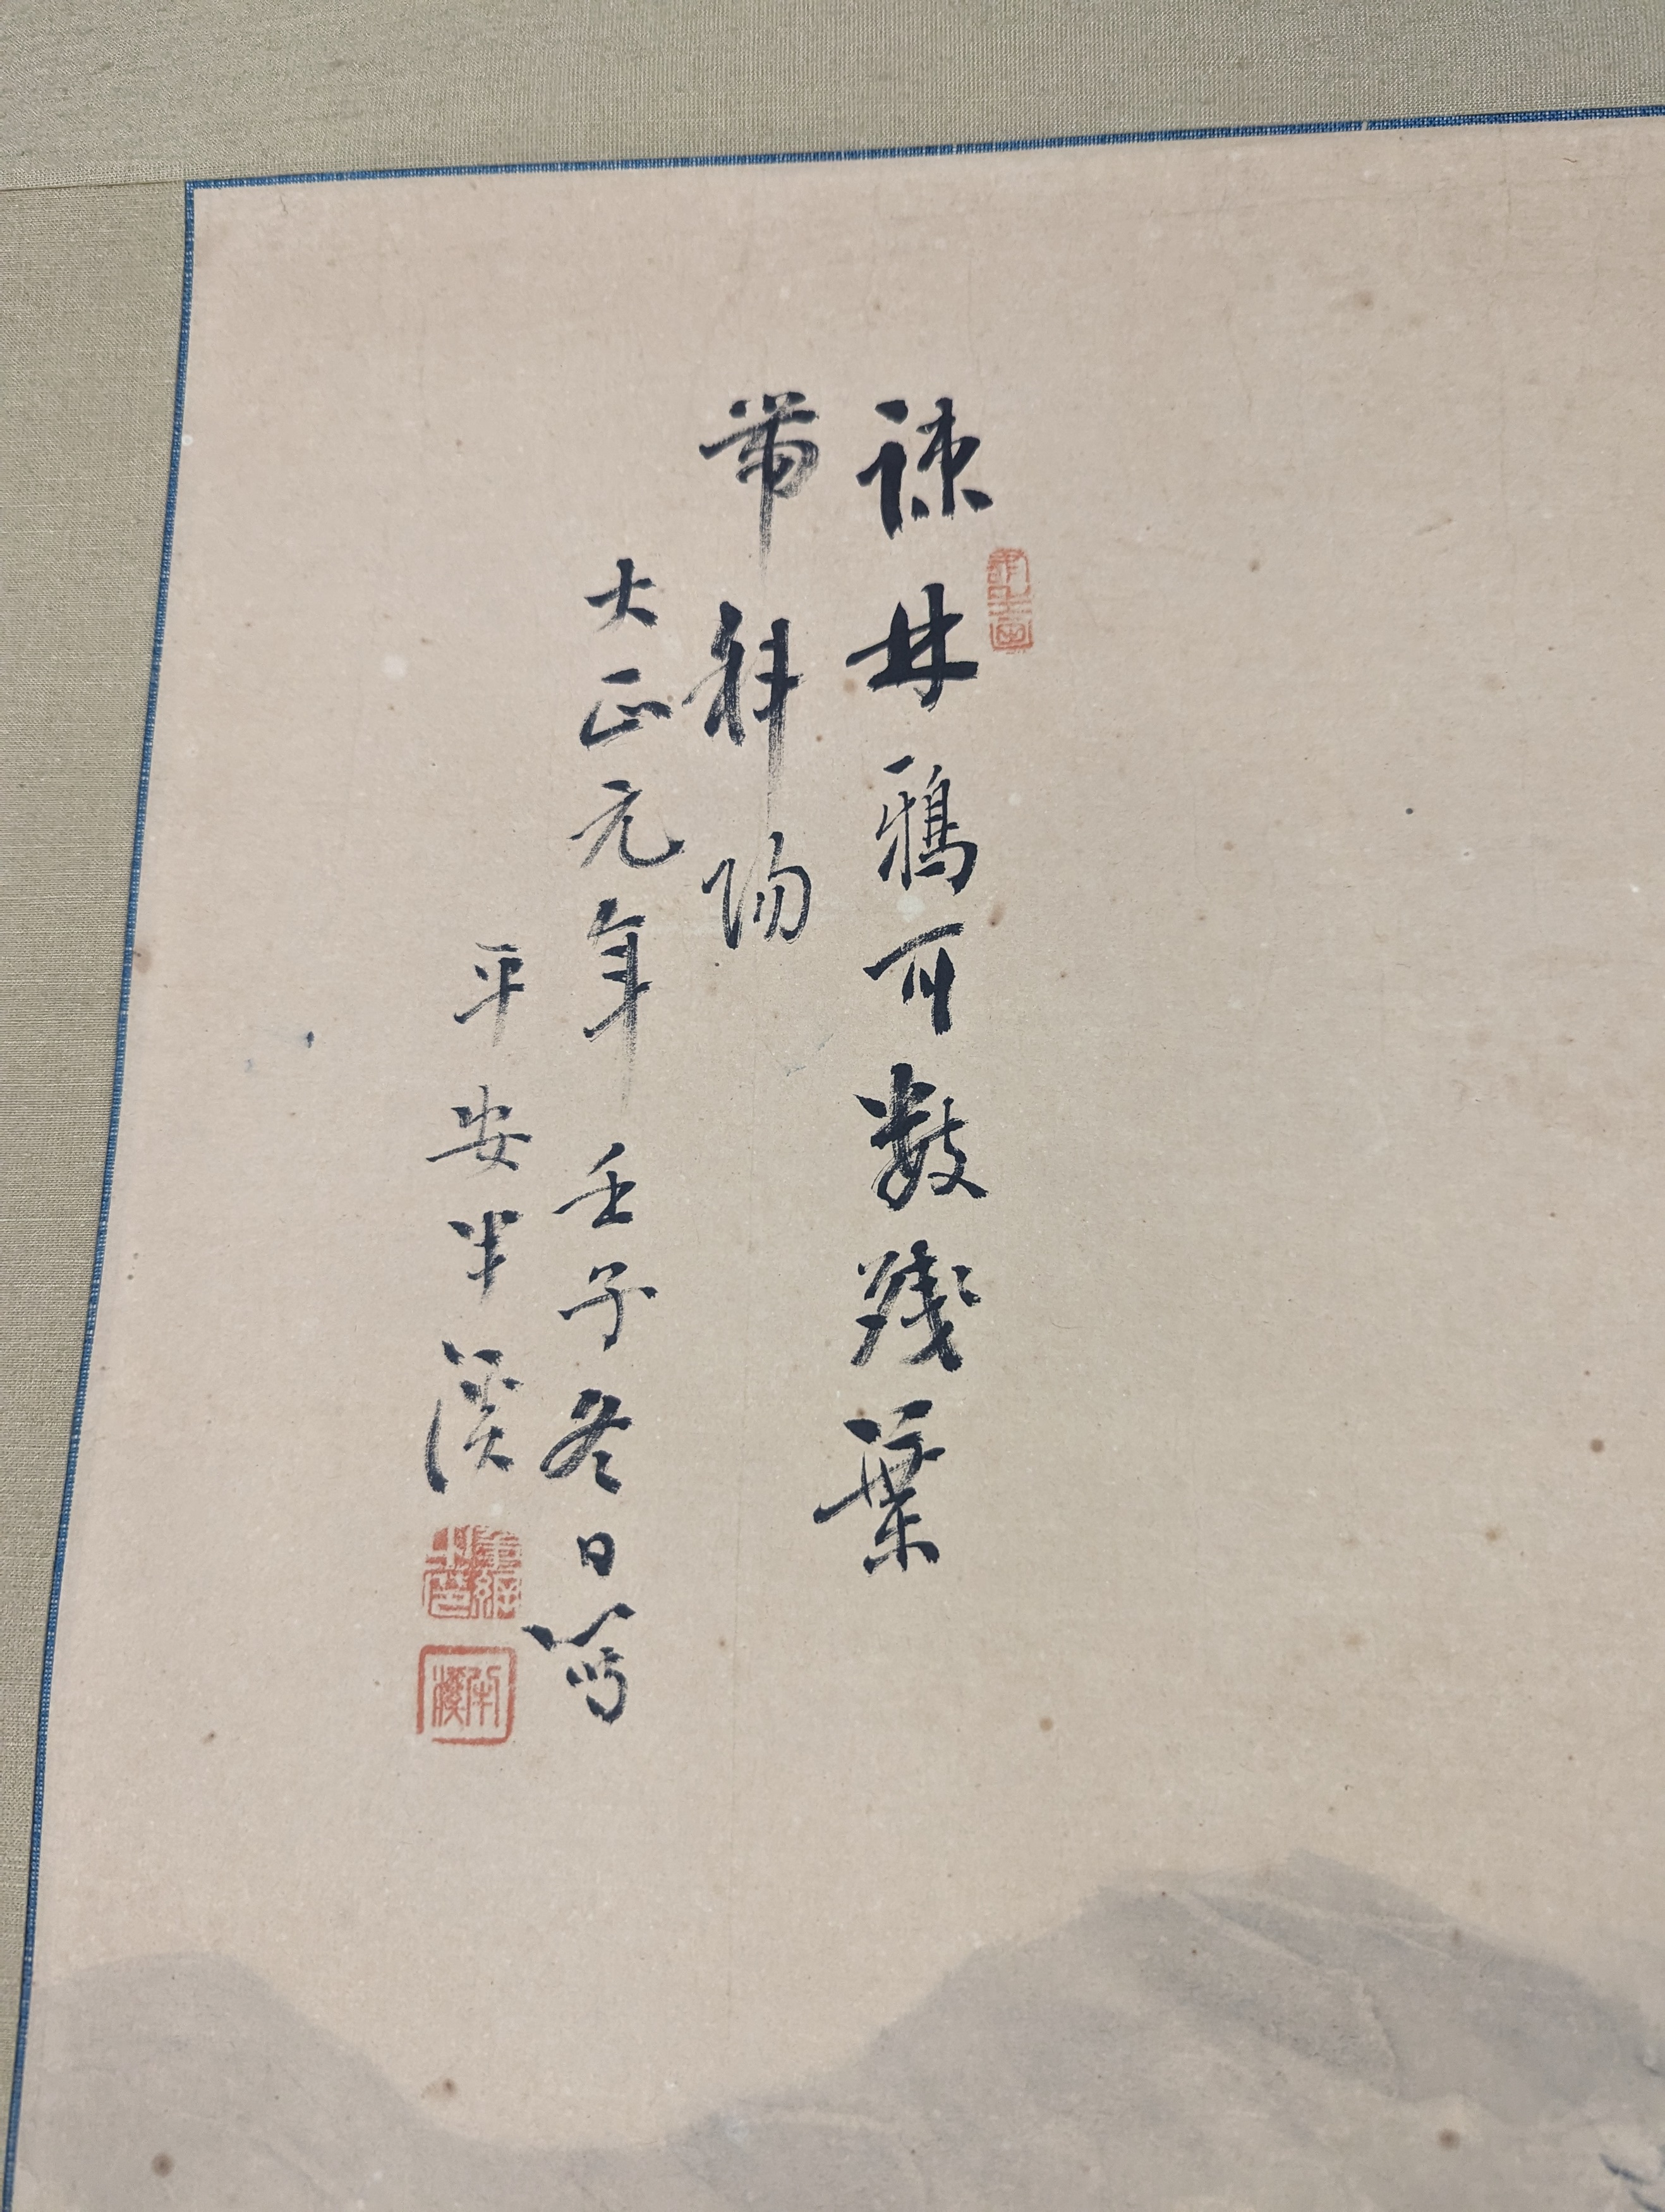 疎林鴉可数残葉
帯斜陽
大正元年壬子冬日写
平安半渓